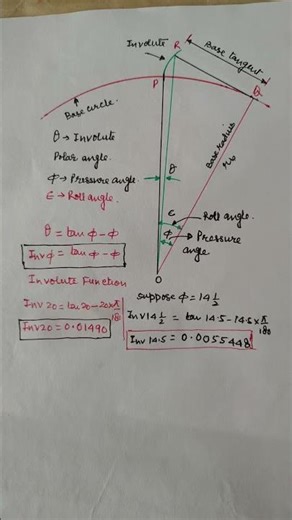 Involute R
Base tangent
P
B
Base circle.
θ → Involute
Polar angle.
ϕ → Pressure angle.
ϵ → Roll angle.
θ
Base radius
ϵ
Roll angle.
ϕ
Pressure
angle
O
θ = tan ϕ - ϕ
Inv ϕ = tan ϕ - ϕ
Involute Function
Inv 20 = tan 20 - 20 × π/180
Inv 20 = 0.01490
suppose ϕ = 14 1/2
Inv 14 1/2 = tan 14.5 - 14.5 × π/180
Inv 14.5 = 0.0055448